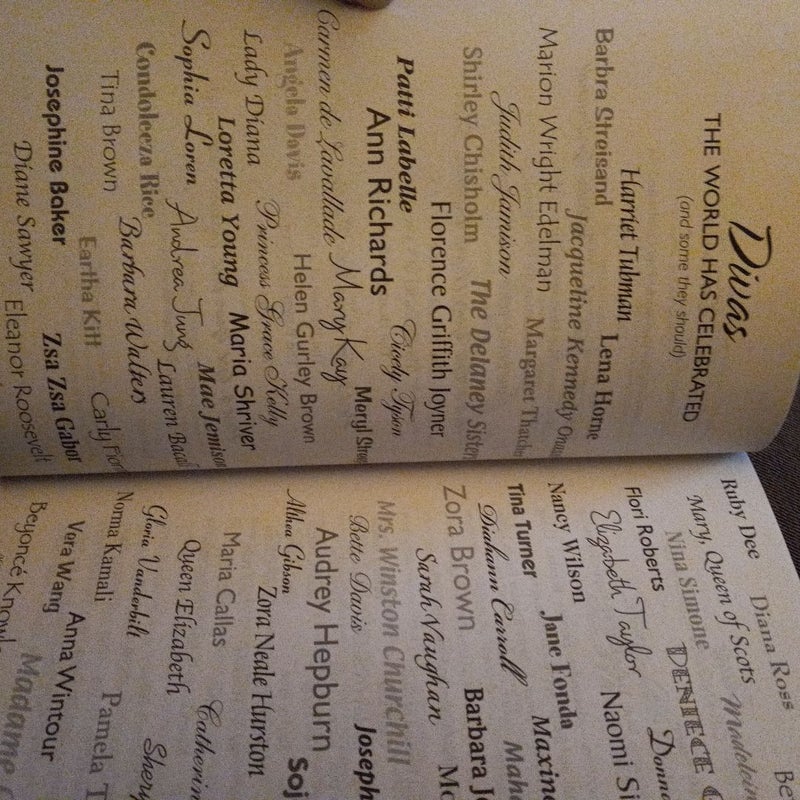 Divas
THE WORLD HAS CELEBRATED
(and some they should)
Harriet Tubman Lena Horne
Barbra Streisand Jacqueline Kennedy
Marion Wright Edelman Margaret Thatcher
Judith Jamison The Delaney Sisters
Shirley Chisholm Florence Griffith Joyner
Patti Labelle Cicely Tyson
Ann Richards Meryl
Carmen de Lavallade Mary Kay
Angela Davis Helen Gurley Brown
Lady Diana Princess Grace Kelly
Loretta Young Maria Shriver
Sophia Loren Andrea Jung Mae Jemison
Condoleeza Rice Barbara Walters Lauren
Tina Brown Eartha Kitt Carly
Josephine Baker Zsa Zsa Gabor
Diane Sawyer Eleanor Roosevelt
Ruby Dee Diana Ross
Mary, Queen of Scots
Nina Simone DENIECE
Flori Roberts
Elizabeth Taylor Naomi
Nancy Wilson Jane Fonda
Tina Turner
Diahann Carroll Barbara
Zora Brown
Sarah Vaughan
Mrs. Winston Churchill
Bette Davis
Audrey Hepburn
Althea Gibson
Zora Neale Hurston
Maria Callas
Queen Elizabeth
Gloria Vanderbilt
Norma Kamali Pamela
Vera Wang Anna Wintour
Beyoncé Madame